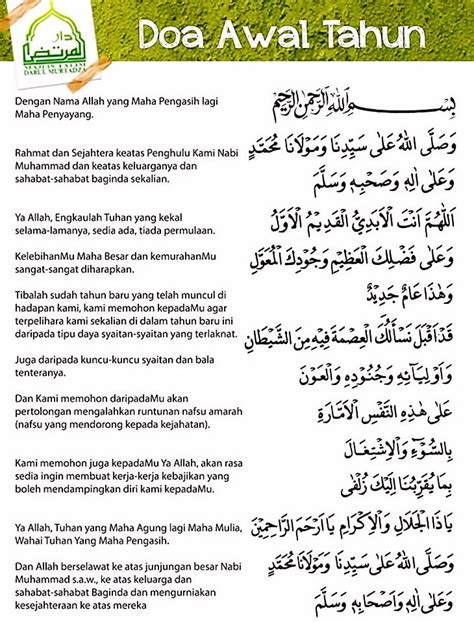 دار المرتضى
MAJLIS TA'LIM
DARUL MURTADZA
Doa Awal Tahun
Dengan Nama Allah yang Maha Pengasih lagi
Maha Penyayang.
بِسْمِ اللهِ الرَّحْمٰنِ الرَّحِيْمِ
Rahmat dan Sejahtera keatas Penghulu Kami Nabi
Muhammad dan keatas keluarganya dan
sahabat-sahabat baginda sekalian.
وَصَلَّى اللهُ عَلَى سَيِّدِنَا وَمَوْلَانَا مُحَمَّدٍ
وَعَلَى اٰلِهِ وَصَحْبِهِ وَسَلَّمَ
Ya Allah, Engkaulah Tuhan yang kekal
selama-lamanya, sedia ada, tiada permulaan.
اَللّٰهُمَّ اَنْتَ الْاَبَدِيُّ الْقَدِيْمُ الْاَوَّلُ
KelebihanMu Maha Besar dan kemurahanMu
sangat-sangat diharapkan.
وَعَلَى فَضْلِكَ الْعَظِيْمِ وَجُوْدِكَ الْمُعَوَّلُ
Tibalah sudah tahun baru yang telah muncul di
hadapan kami, kami memohon kepadaMu agar
terpelihara kami sekalian di dalam tahun baru ini
daripada tipu daya syaitan-syaitan yang terlaknat.
وَهٰذَا عَامٌ جَدِيْدٌ
قَدْ اَقْبَلَ نَسْأَلُكَ الْعِصْمَةَ فِيْهِ مِنَ الشَّيْطَانِ
Juga daripada kuncu-kuncu syaitan dan bala
tenteranya.
وَاَوْلِيَائِهِ وَجُنُوْدِهِ وَالْعَوْنَ
Dan Kami memohon daripadaMu akan
pertolongan mengalahkan runtunan nafsu amarah
(nafsu yang mendorong kepada kejahatan).
عَلَى هٰذِهِ النَّفْسِ الْاَمَّارَةِ
بِالسُّوْءِ وَالْاِشْتِغَالَ
Kami memohon juga kepadaMu Ya Allah, akan rasa
sedia ingin membuat kerja-kerja kebajikan yang
boleh mendampingan diri kami kepadaMu.
بِمَا يُقَرِّبُنَا اِلَيْكَ زُلْفَى
Ya Allah, Tuhan yang Maha Agung lagi Maha Mulia,
Wahai Tuhan Yang Maha Pengasih.
يَاذَا الْجَلَالِ وَالْاِكْرَامِ يَااَرْحَمَ الرَّاحِمِيْنَ
Dan Allah berselawat ke atas junjungan besar Nabi
Muhammad s.a.w., ke atas keluarga dan
sahabat-sahabat Baginda dan mengurniakan
kesejahteraan ke atas mereka
وَصَلَّى اللهُ عَلَى سَيِّدِنَا وَمَوْلَانَا مُحَمَّدٍ
وَعَلَى اٰلِهِ وَاَصْحَابِهِ وَسَلَّمَ